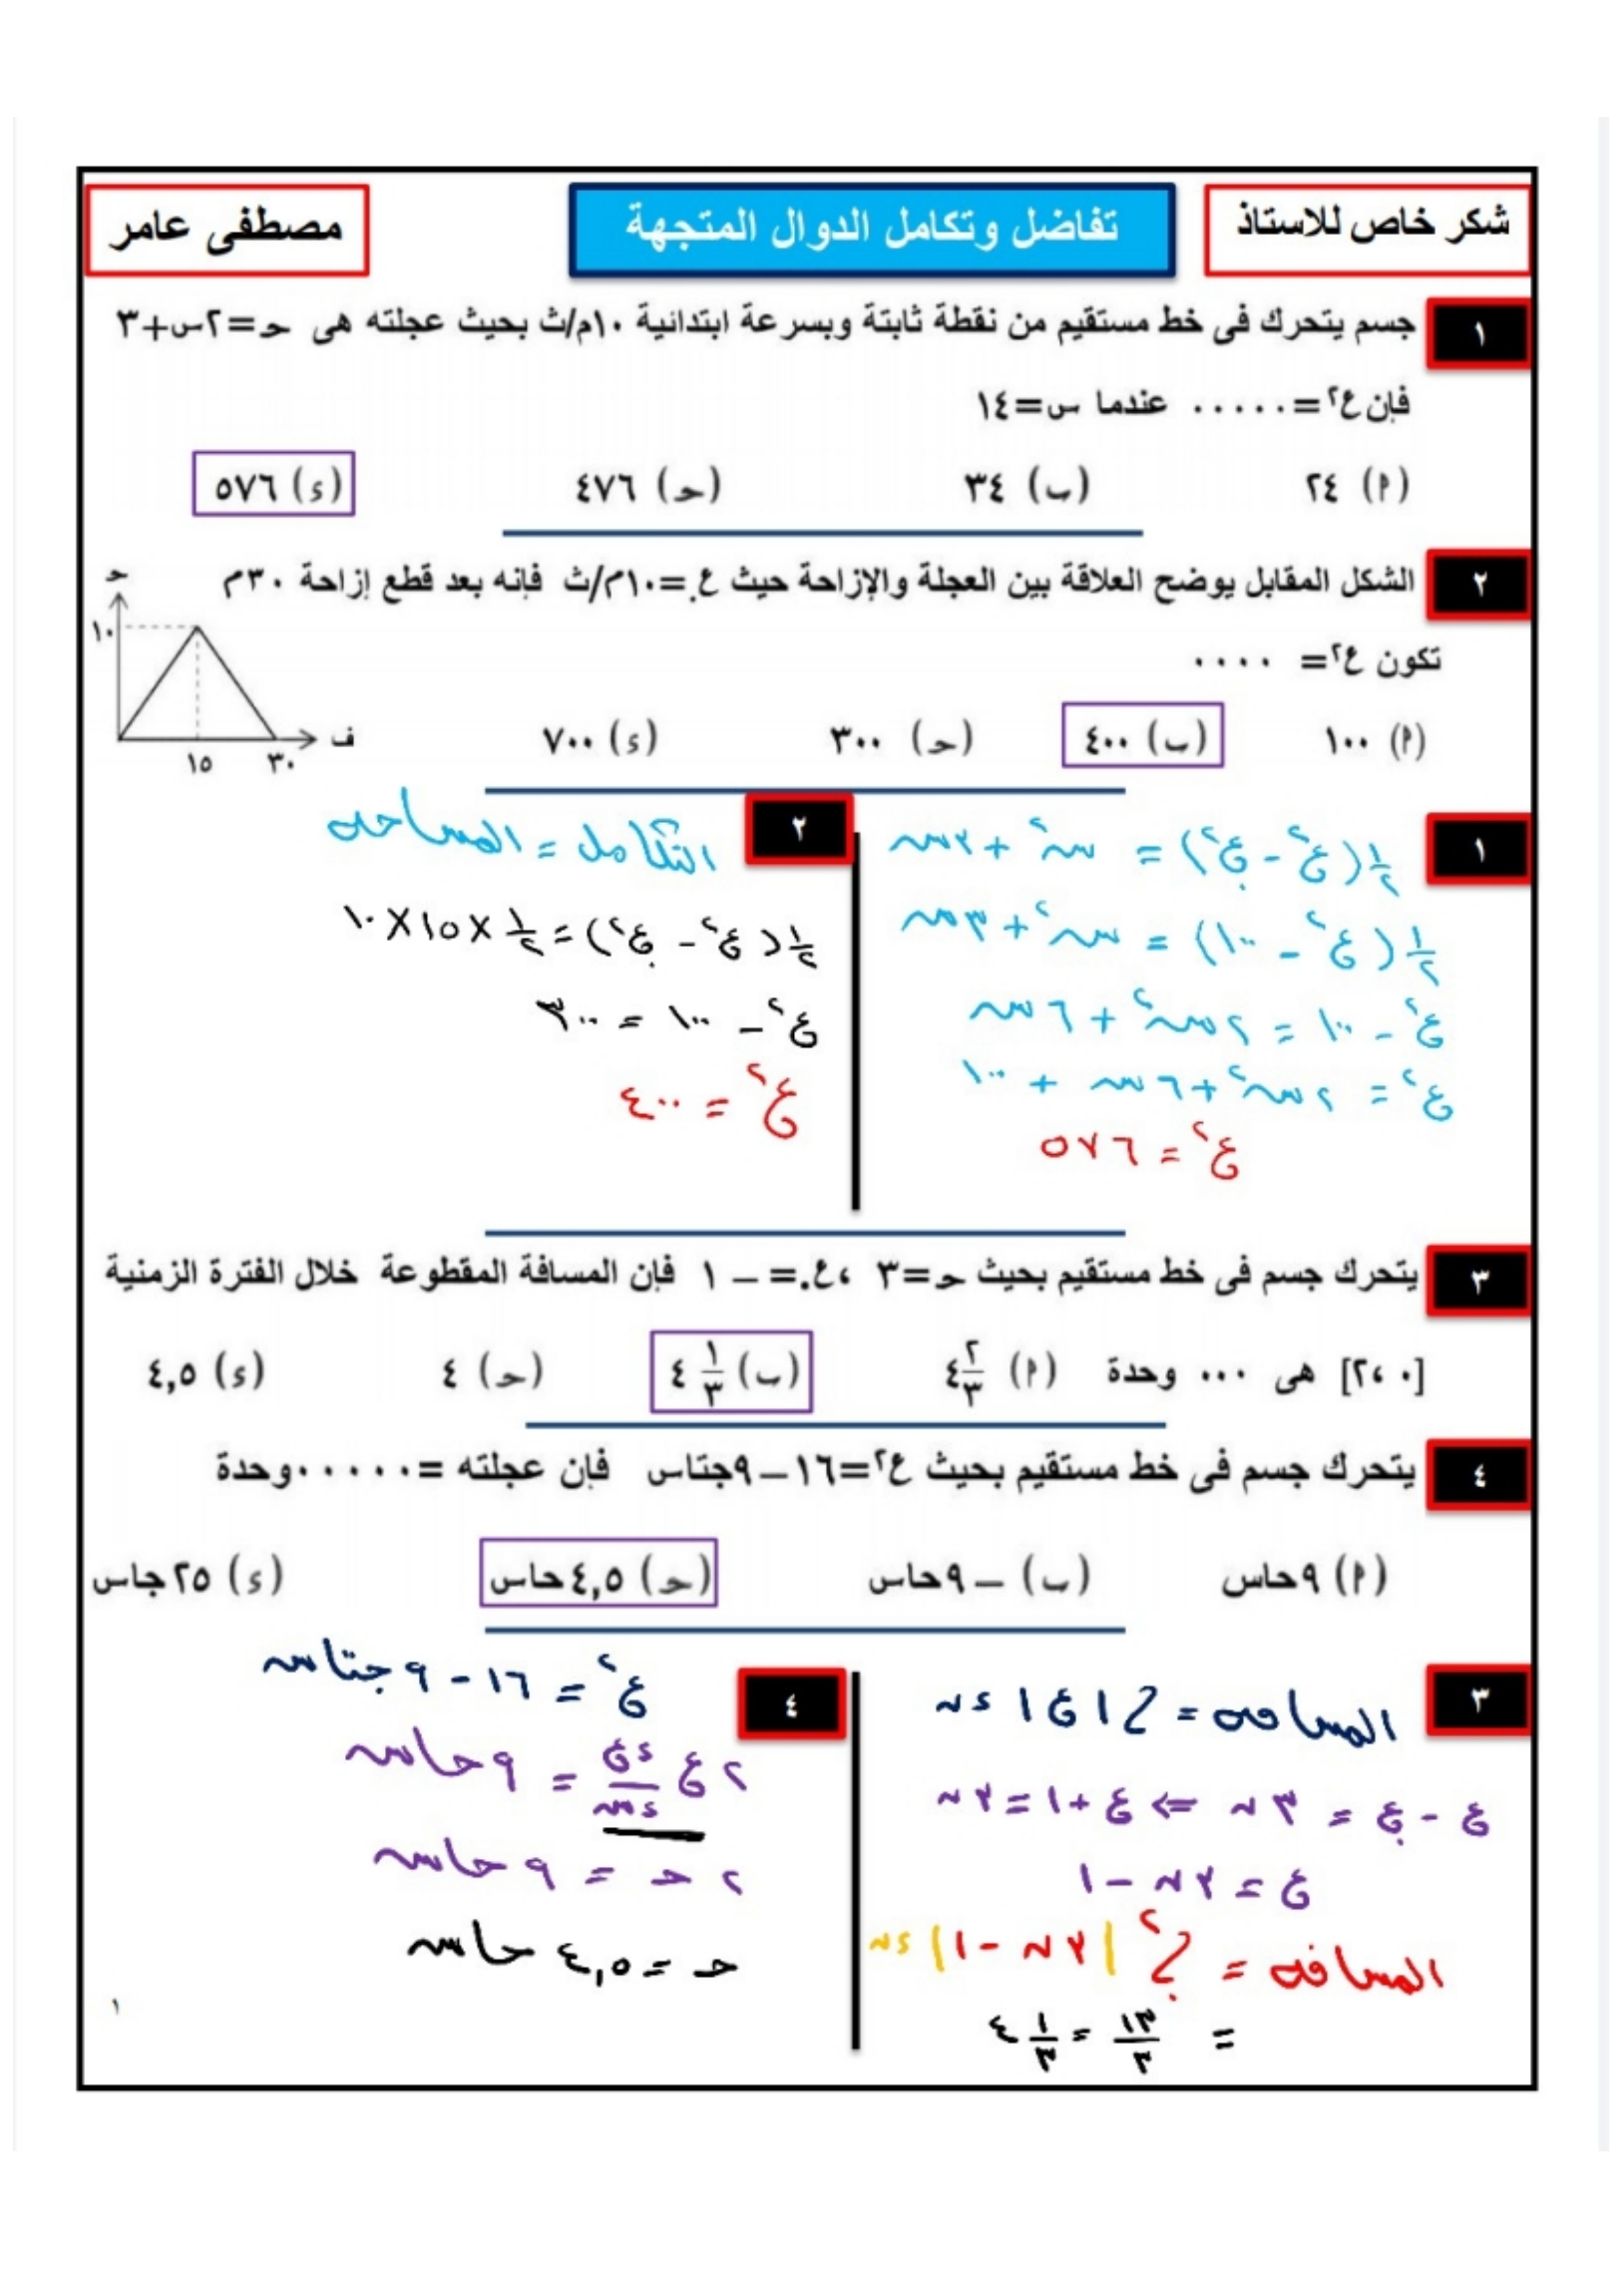 شكر خاص للاستاذ
تفاضل وتكامل الدوال المتجهة
مصطفى عامر
١ جسم يتحرك فى خط مستقيم من نقطة ثابتة وبسرعة ابتدائية ١٠م/ث بحيث عجلته هى حـ=٢س+٣
فإن ع٢=٠٠٠٠٠ عندما س=١٤
(١) ٢٤ (ب) ٣٤ (حـ) ٤٧٦ (ء) ٥٧٦
٢ الشكل المقابل يوضح العلاقة بين العجلة والإزاحة حيث ع.=١٠م/ث فإنه بعد قطع إزاحة ٣٠م
تكون ع٢= ٠٠٠٠
(١) ١٠٠ (ب) ٤٠٠ (حـ) ٣٠٠ (ء) ٧٠٠
حـ
١٠
ف
١٥ ٣٠
١
١/٢(ع٢ - ع.٢) = س٢ + ٣س
١/٢(ع٢ - ١٠٠) = س٢ + ٣س
ع٢ - ١٠٠ = ٢س٢ + ٦س
ع٢ = ٢س٢ + ٦س + ١٠٠
ع٢ = ٥٧٦
٢
التكامل = المساحه
١/٢(ع٢ - ع.٢) = ١/٢ × ١٥ × ١٠
ع٢ - ١٠٠ = ٣٠٠
ع٢ = ٤٠٠
٣ يتحرك جسم فى خط مستقيم بحيث حـ=٣ ،ع.=– ١ فإن المسافة المقطوعة خلال الفترة الزمنية
[٠ ،٢] هى ٠٠٠ وحدة (١) ٤ ٢/٣ (ب) ٤ ١/٣ (حـ) ٤ (ء) ٤,٥
٤ يتحرك جسم فى خط مستقيم بحيث ع٢=١٦–٩جتاس فإن عجلته =٠٠٠٠٠وحدة
(١) ٩حاس (ب) –٩حاس (حـ) ٤,٥حاس (ء) ٢٥جاس
٣
المسافه = ∫|ع| ءن
ع - ع. = ٣ن ⇐ ع + ١ = ٣ن
ع = ٣ن - ١
المسافه = ∫٠٢ |٣ن - ١| ءن
= ١٣/٣ = ٤ ١/٣
٤
ع٢ = ١٦ - ٩جتاس
٢ع ءع/ءس = ٩حاس
٢حـ = ٩حاس
حـ = ٤,٥ حاس
١